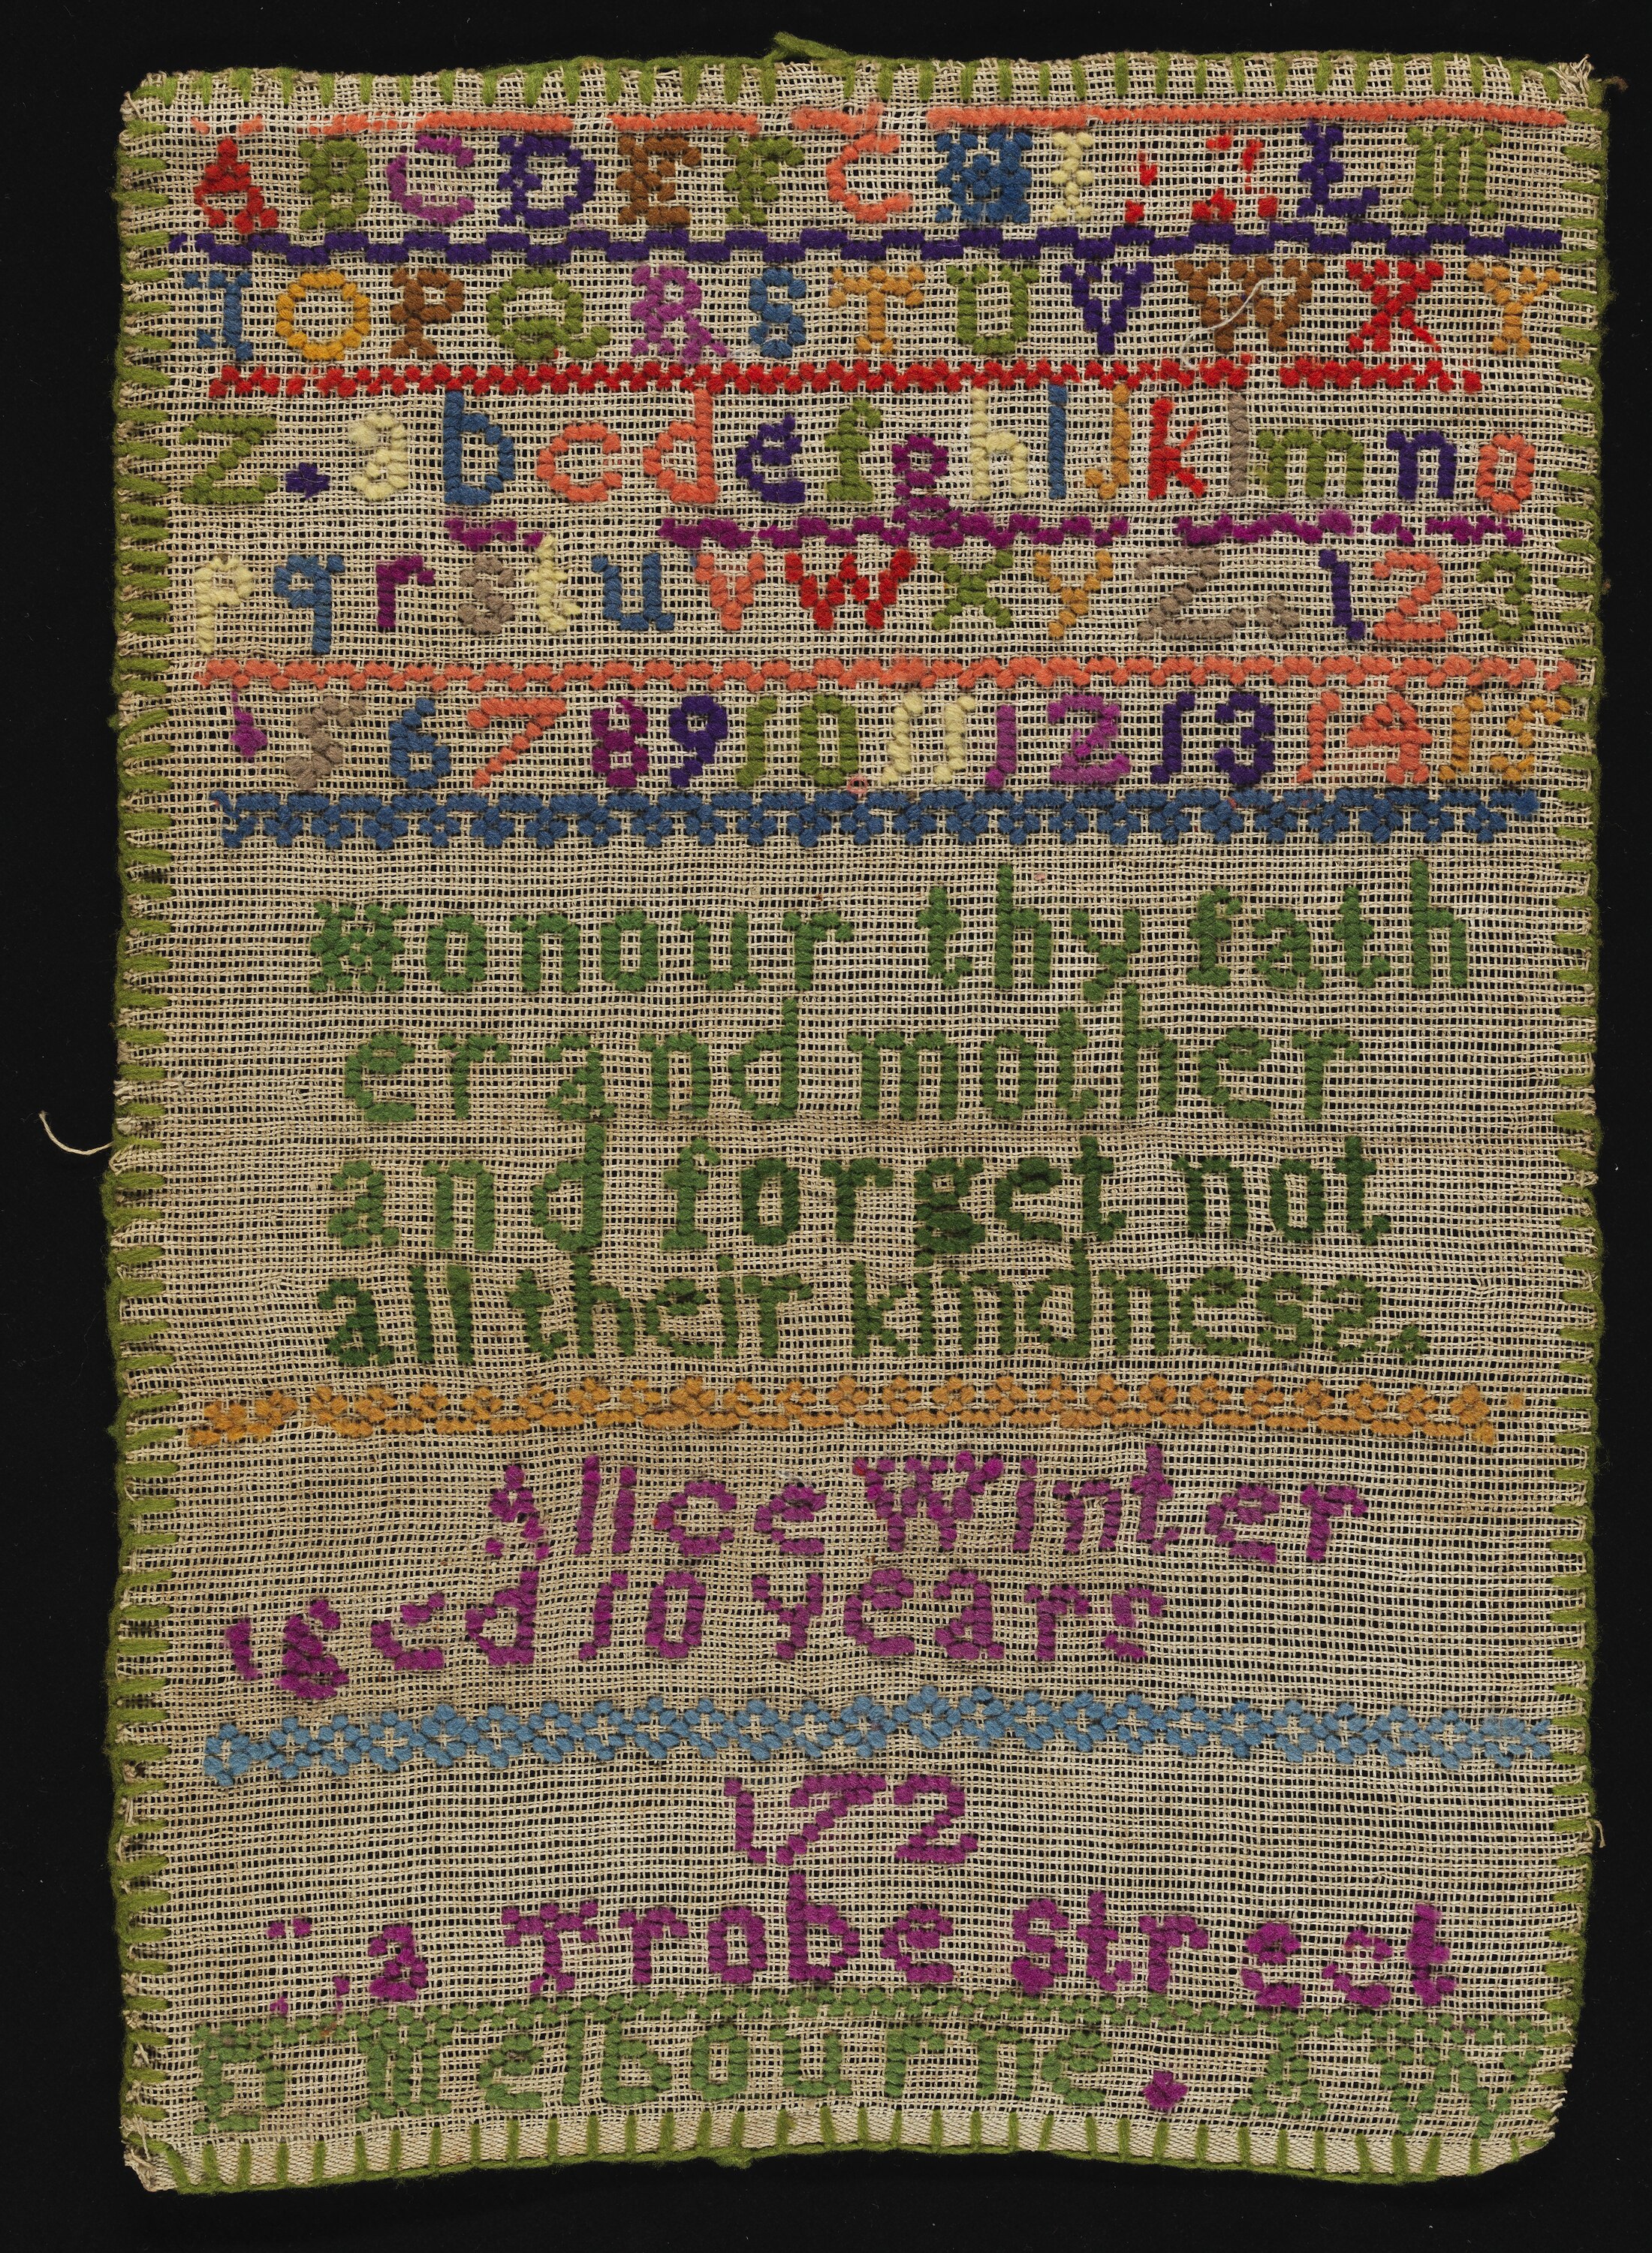 A B C D E F G H I J K L M
N O P Q R S T U V W X Y
Z . a b c d e f g h I J k l m n o
p q r s t u v w x y z . 1 2 3
5 6 7 8 9 10 11 12 13 14 15
Honour thy fath
er and mother
and forget not
all their kindness.
Alice Winter
aged 10 years
172
La Trobe Street
E Melbourne . A W